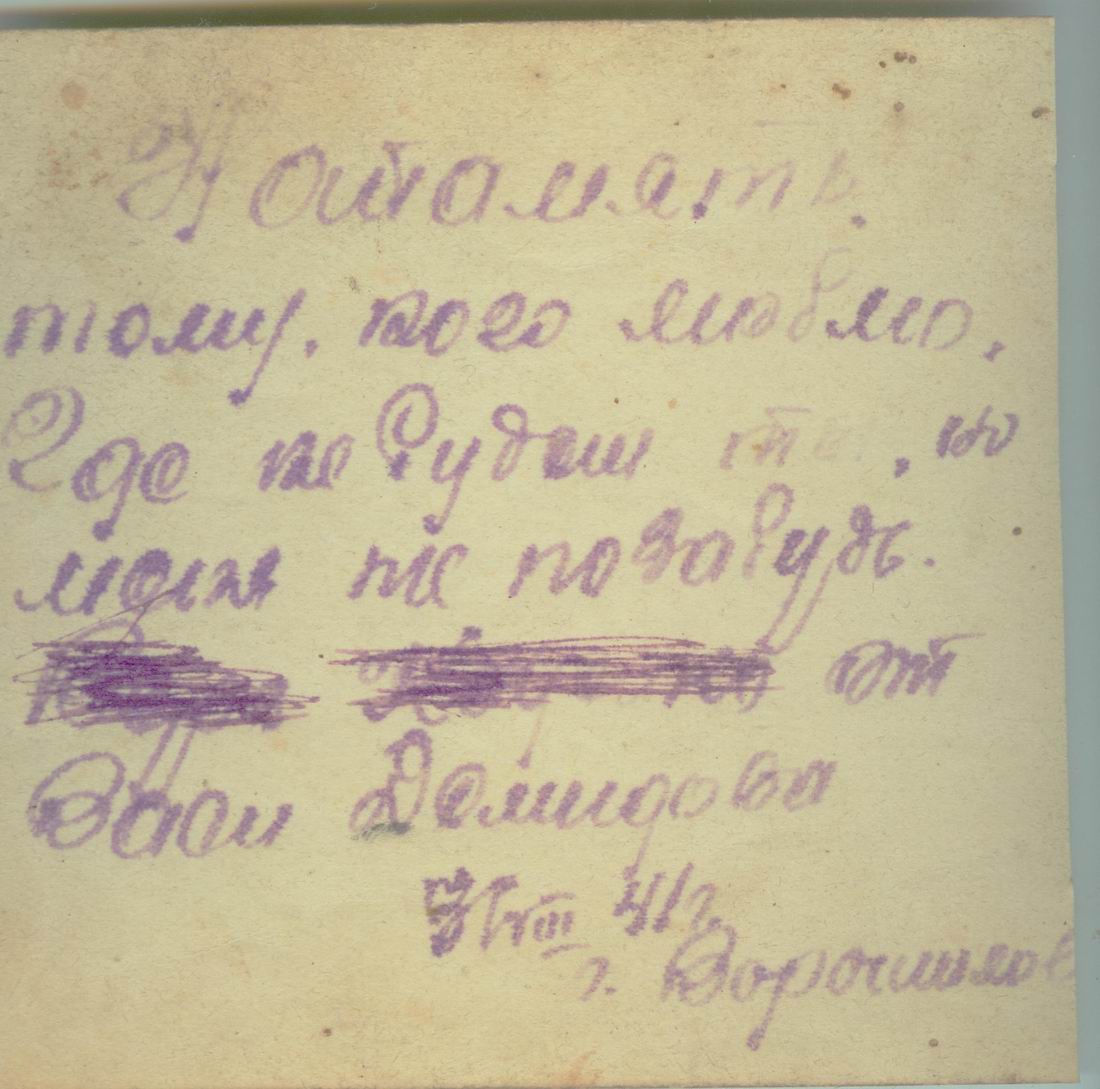 На память
тому, кого люблю.
Где не будеш , но
меня не позабудь.
от
Васи Демидова
31/VIII 41 г.
г. Ворошилов